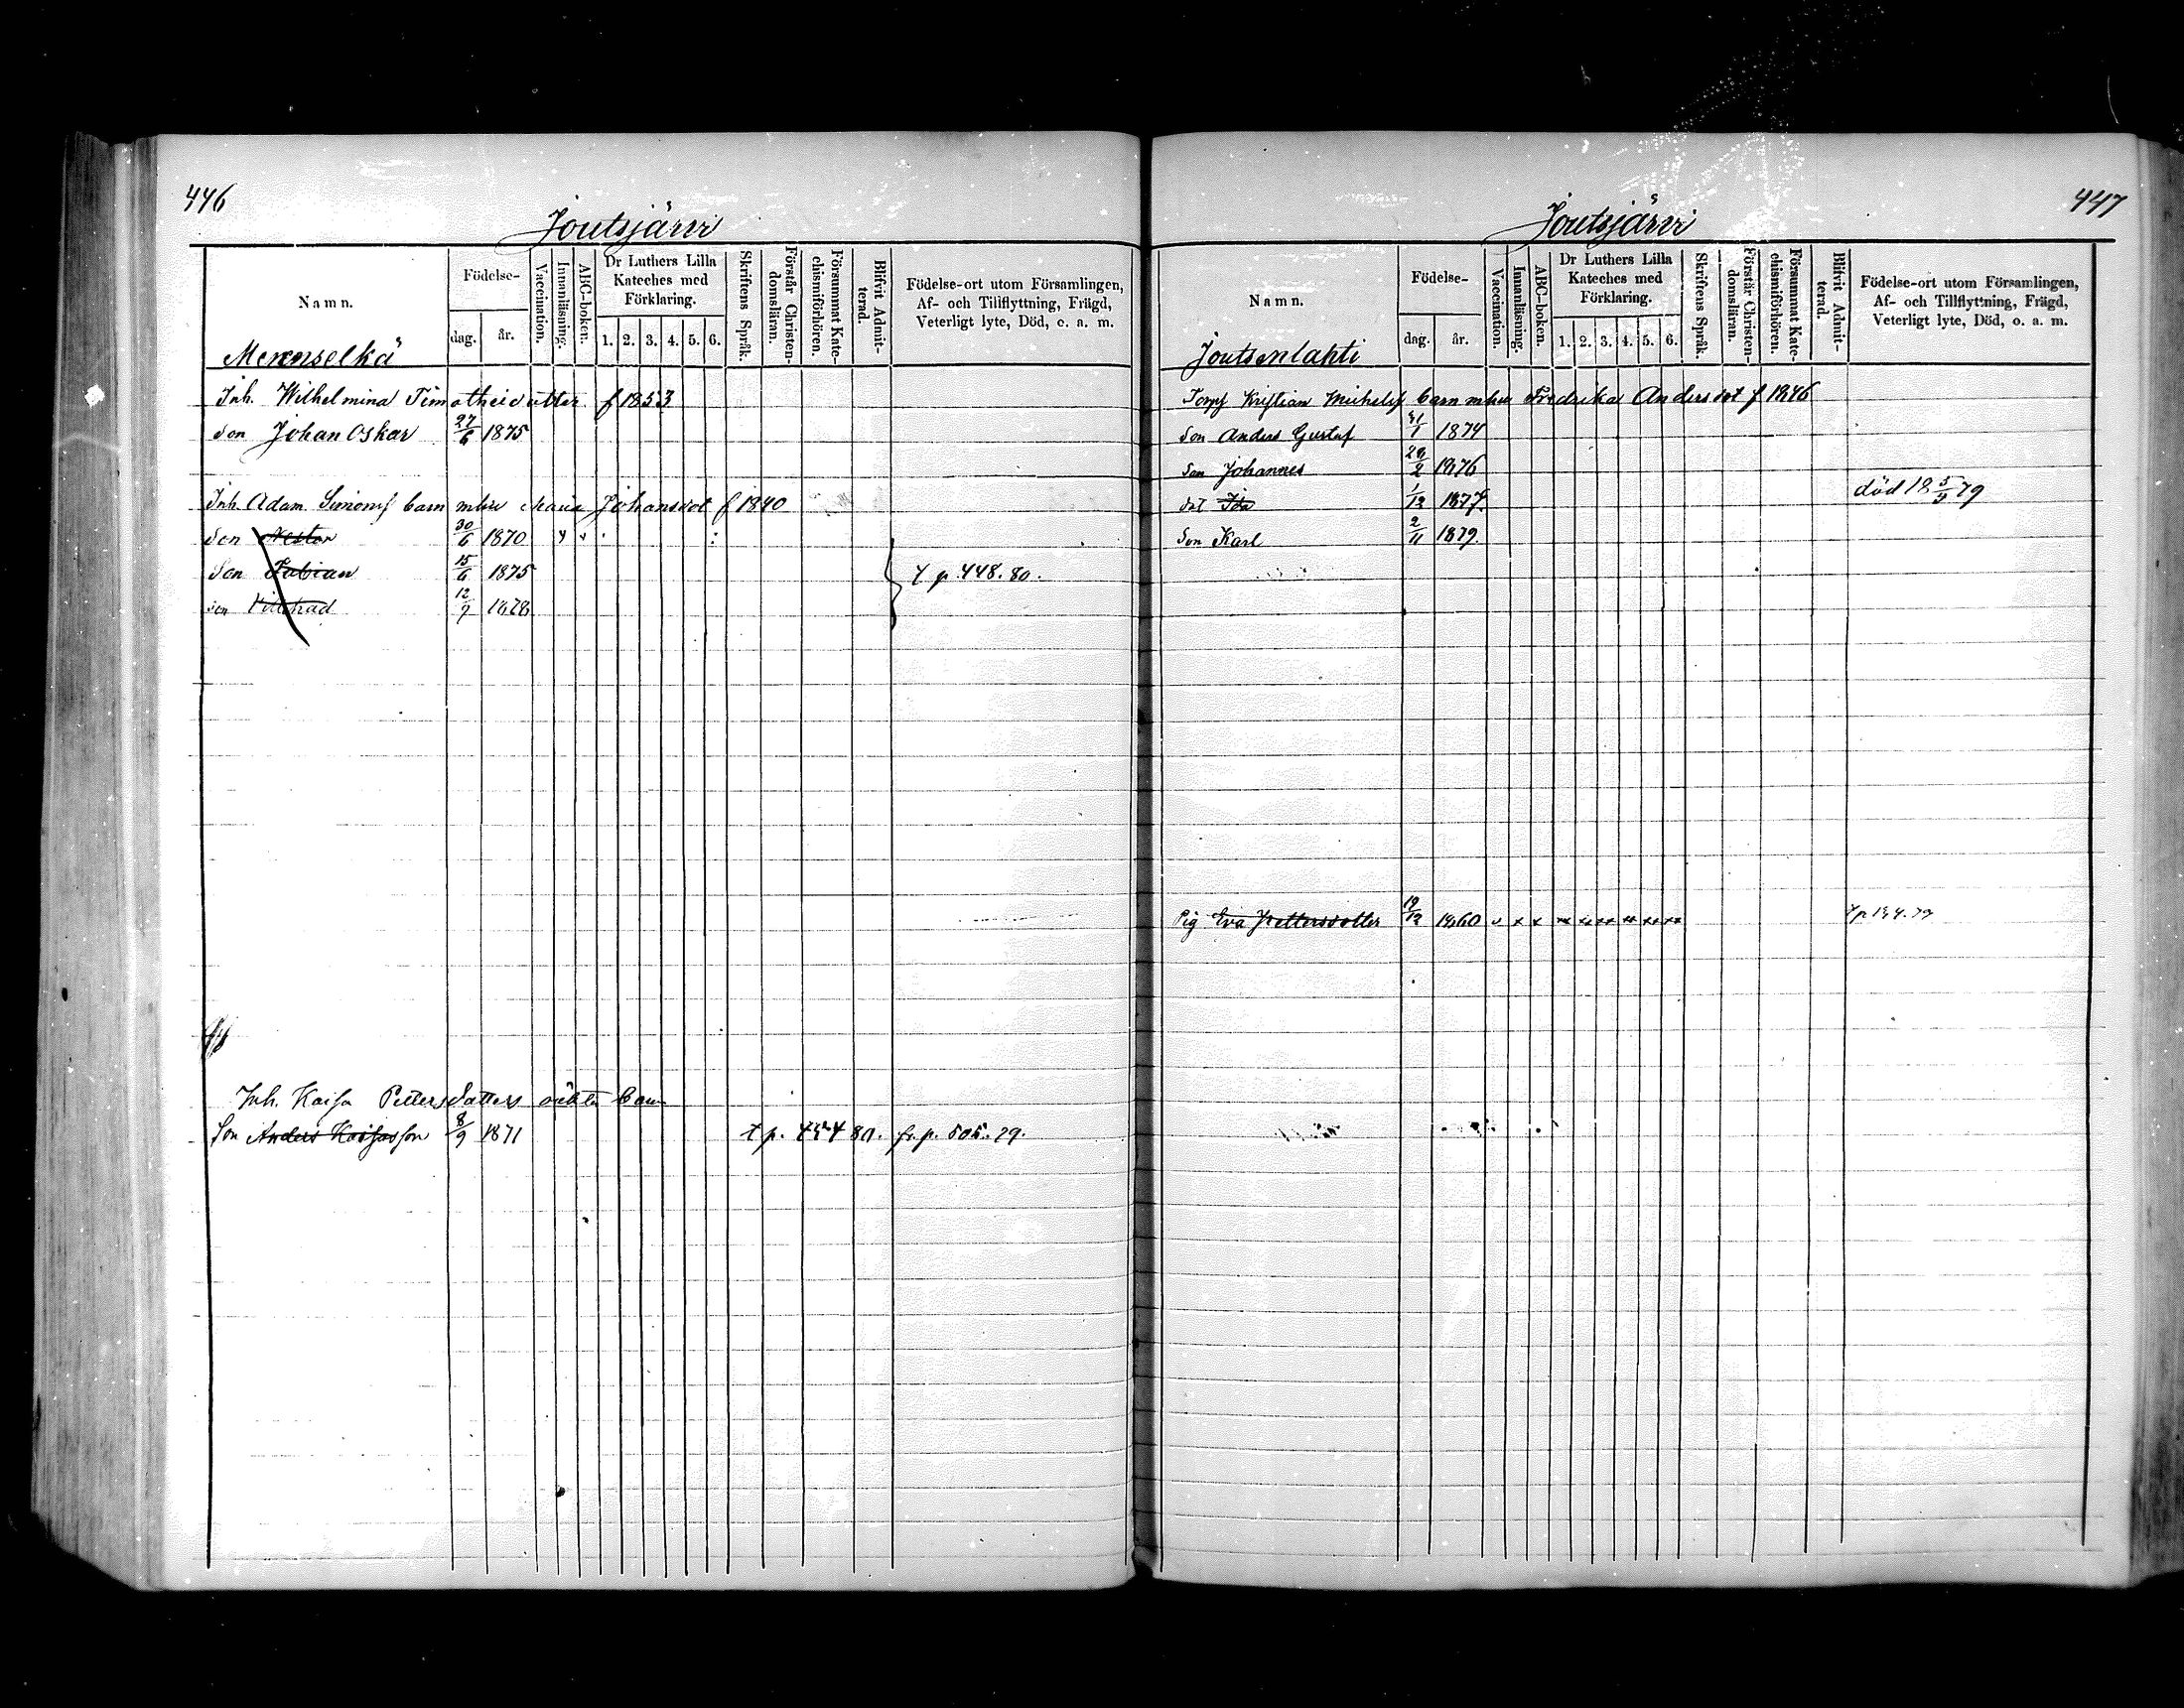 446
Joutsjärvi
Namn.
Födelse-
dag.
år.
Vaccination.
Innanläsning.
ABC-boken.
Dr Luthers Lilla
Kateches med
Förklaring.
1. 2. 3. 4. 5. 6.
Skriftens Språk.
Förstår Christen-
domsläran.
Försummat Kate-
chismiförhören.
Blifvit Admit-
terad.
Födelse-ort utom Församlingen,
Af- och Tillflyttning, Frägd,
Veterligt lyte, Död, o. a. m.
Inh. Wilhelmina Timotheidotter f 1853
Son Johan Oskar 27/6 1875
Inh. Adam Simons barn mhu Maria Johansdot f 1840
Son Nestor 30/6 1870
Son Fabian 15/6 1875 t p. 448. 80.
son 12/9 1878
Inh. Kaisa Petters Dotters oäkta barn
Son Anders Kaisasson 8/9 1871 t p. 454 80. fr. p. 505. 79.
447
Joutsjärvi
Namn.
Födelse-
dag.
år.
Vaccination.
Innanläsning.
ABC-boken.
Dr Luthers Lilla
Kateches med
Förklaring.
1. 2. 3. 4. 5. 6.
Skriftens Språk.
Förstår Christen-
domsläran.
Försummat Kate-
chismiförhören.
Blifvit Admit-
terad.
Födelse-ort utom Församlingen,
Af- och Tillflyttning, Frägd,
Veterligt lyte, Död, o. a. m.
Joutsenlahti
Torp Kristian Michels barn mhu Fredrika Andersdot f 1846
Son Anders Gustaf 1874
Son Johannes 1876
dot Ida 1/12 1877. död 18 5/9 79
Son Karl 2/11 1879.
Pig Eva Pettersdotter 19/12 1860 x x x x x x x x